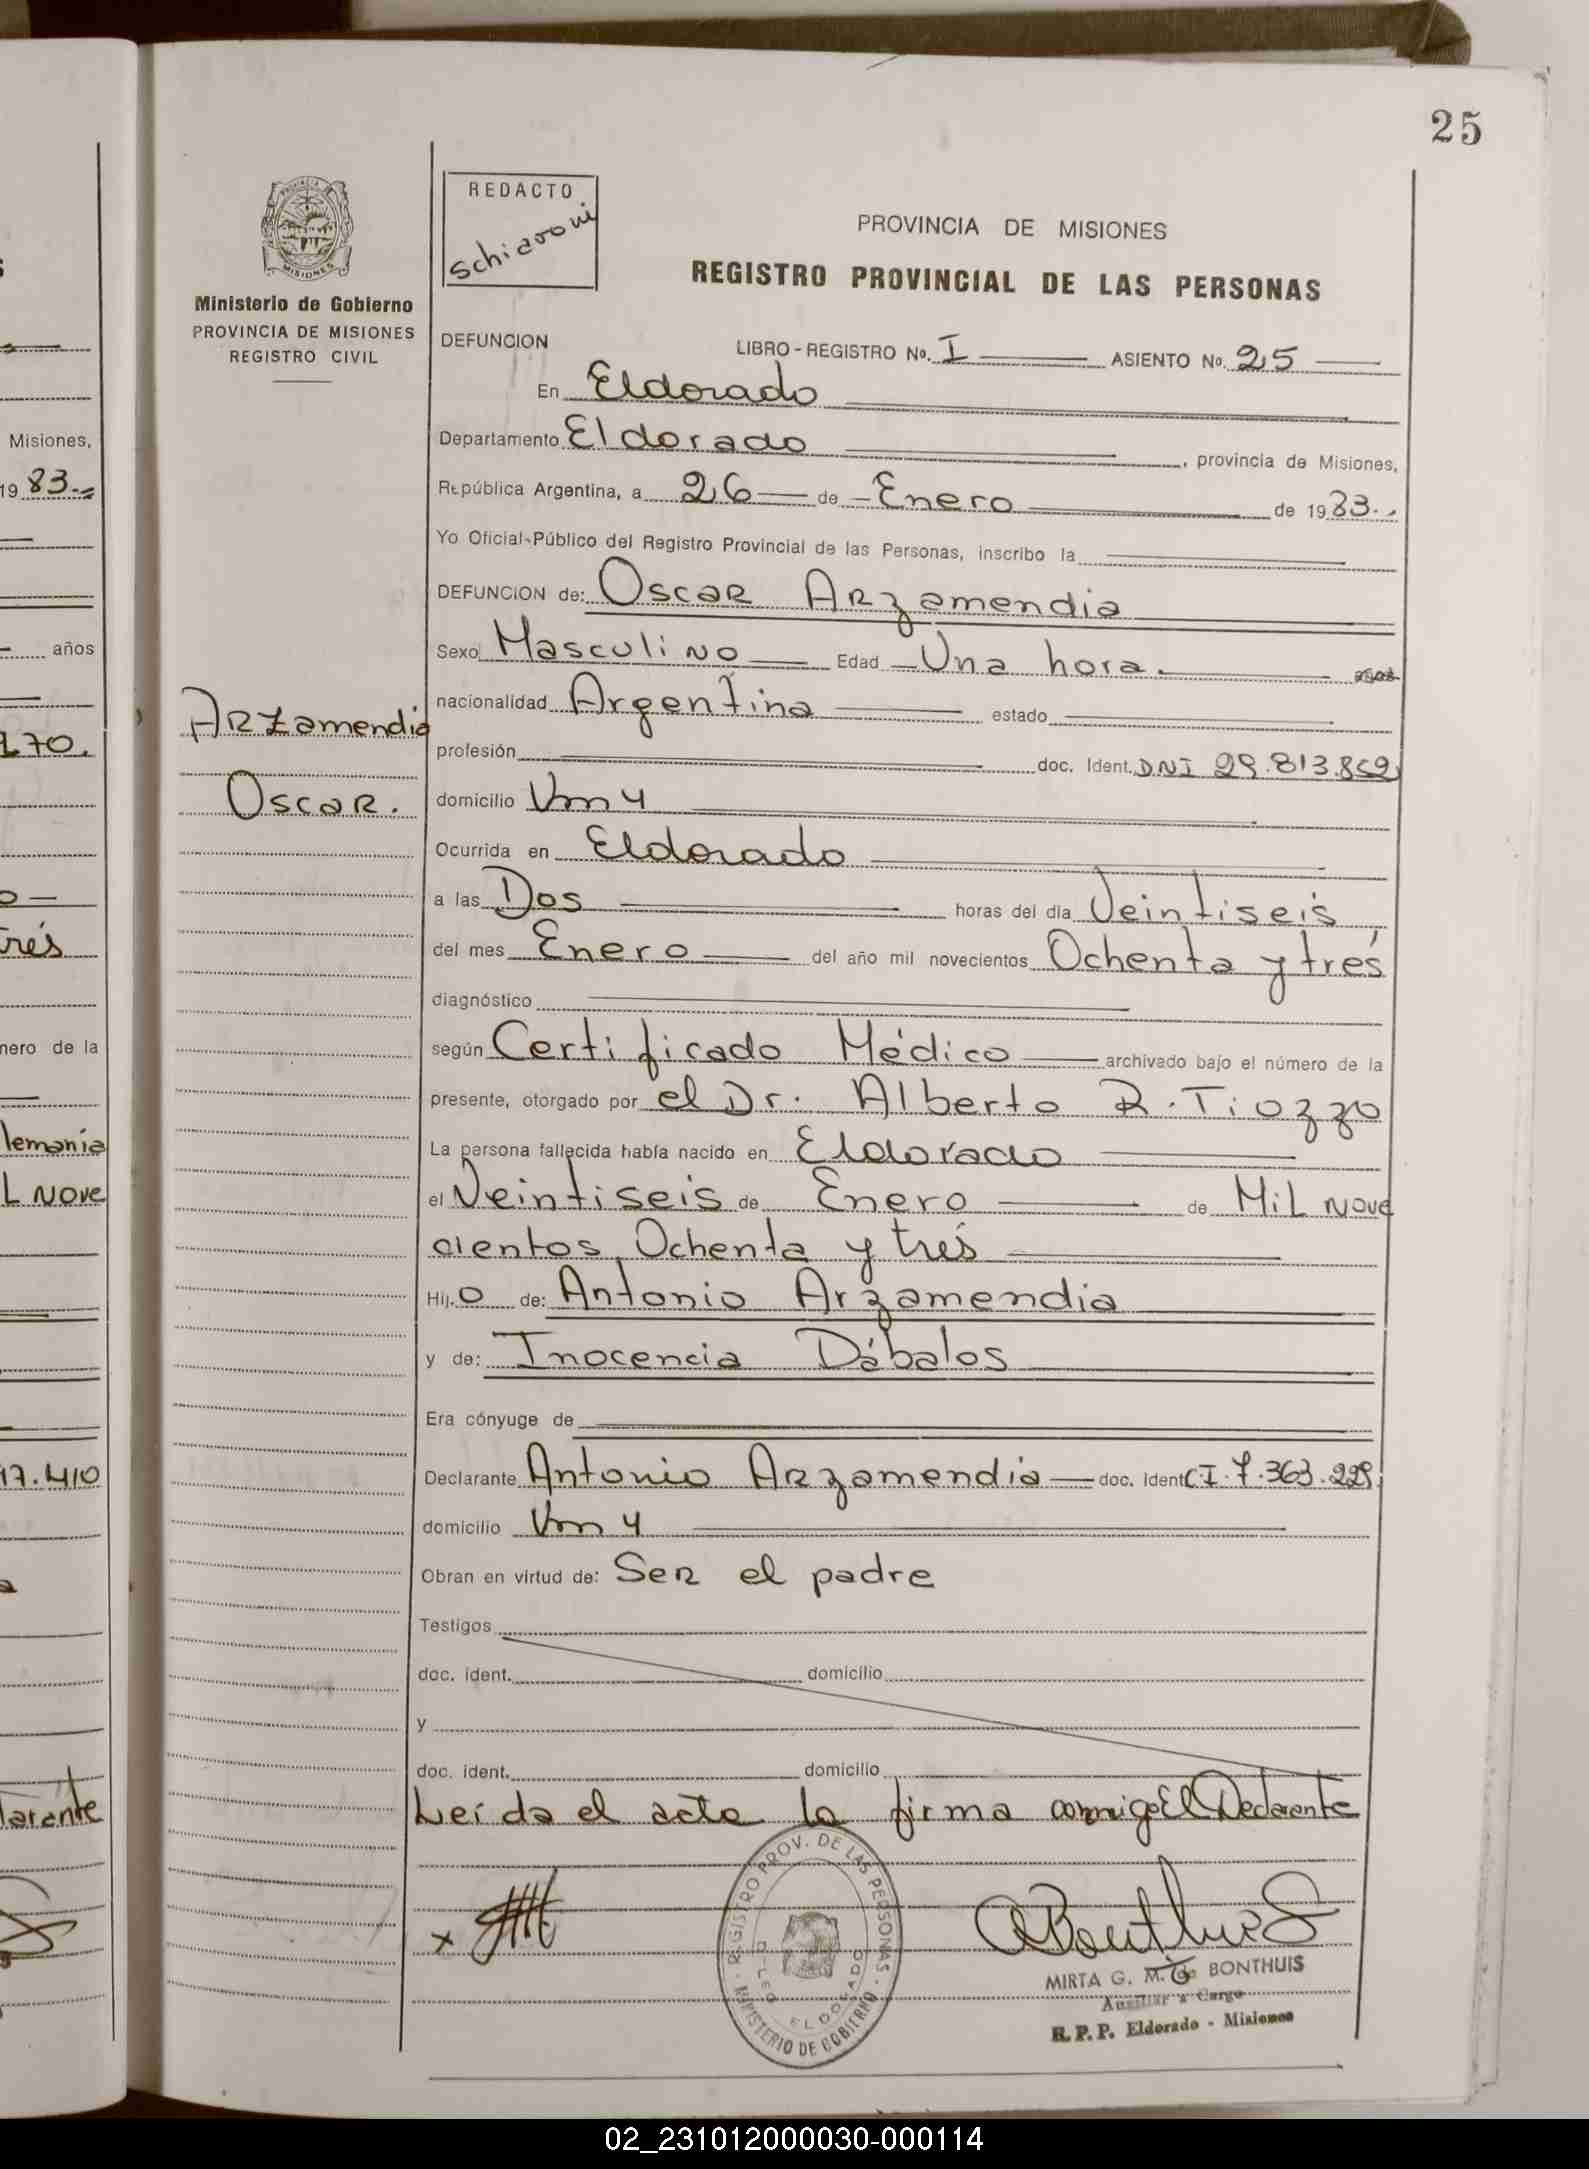 25
REDACTO
Schiavoni
PROVINCIA DE MISIONES
REGISTRO PROVINCIAL DE LAS PERSONAS
Ministerio de Gobierno
PROVINCIA DE MISIONES
REGISTRO CIVIL
DEFUNCION
LIBRO-REGISTRO No. I ASIENTO No. 25
En Eldorado
Departamento Eldorado, provincia de Misiones,
República Argentina, a 26 de Enero de 1983.
Yo Oficial Público del Registro Provincial de las Personas, inscribo la
DEFUNCION de: Oscar Arzamendia
Sexo Masculino Edad Una hora.
nacionalidad Argentina estado
Arzamendia
Oscar.
profesión doc. Ident. DNI 29.813.862
domicilio Km 4
Ocurrida en Eldorado
a las Dos horas del día Veintiseis
del mes Enero del año mil novecientos Ochenta y trés
diagnóstico
según Certificado Médico archivado bajo el número de la
presente, otorgado por el Dr. Alberto R. Tiozzo
La persona fallecida había nacido en Eldorado
el Veintiseis de Enero de Mil nove
cientos Ochenta y trés
Hij. o de: Antonio Arzamendia
y de: Inocencia Dábalos
Era cónyuge de
Declarante Antonio Arzamendia doc. Ident C.I. 7.363.229
domicilio Km 4
Obran en virtud de: Ser el padre
Testigos
doc. ident. domicilio
y
doc. ident. domicilio
Leída el acta la firma conmigo El Declarente
REGISTRO PROV. DE LAS PERSONAS
ELDORADO
MINISTERIO DE GOBIERNO
MIRTA G. M. de BONTHUIS
Auxiliar a Cargo
R. P. P. Eldorado - Misiones
Misiones,
1983.
años
170.
trés
nero de la
lemania
L Nove
17.410
larante
02_231012000030-000114